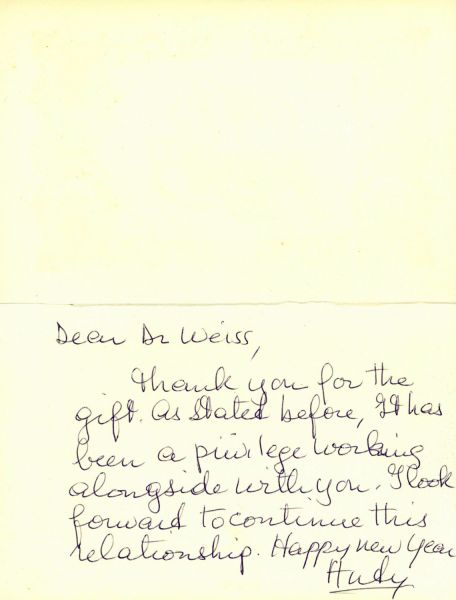 Dear Dr Weiss,
Thank you for the
gift. As stated before, It has
been a privilege working
alongside with you. I look
forward to continue this
relationship. Happy new Year